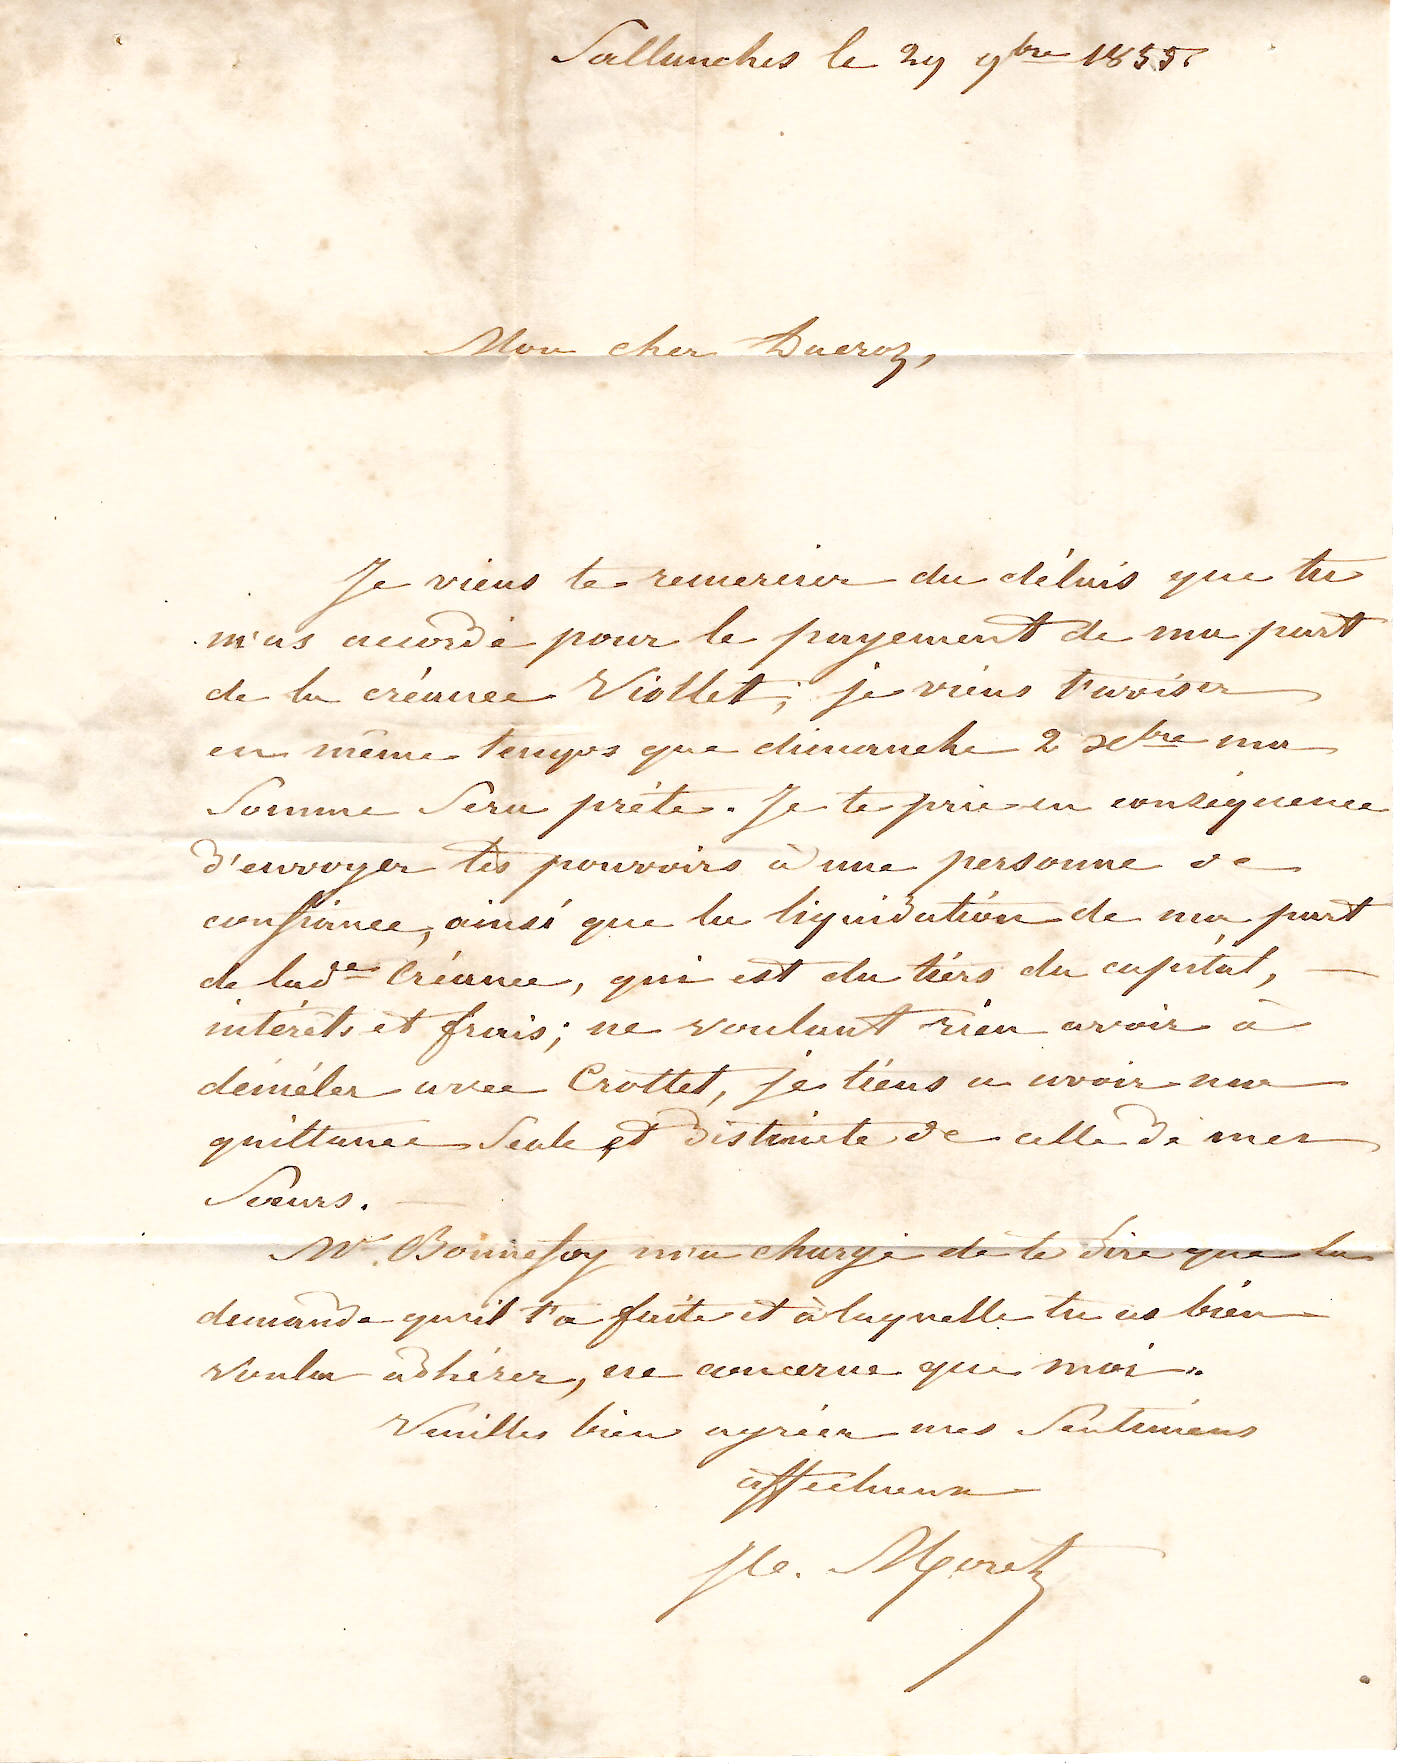 Sallanches le 29 9bre 1855
Mon cher Ducroz,
Je viens te remercier du délais que tu
m'as accordé pour le payement de ma part
de la créance Viollet; je viens t'aviser
en même temps que dimanche 2 Xbre ma
Somme Sera prête. Je te prie en conséquence
d'envoyer tes pouvoirs à une personne de
confiance, ainsi que la liquidation de ma part
de lade Créance, qui est du tiers du capital,
intérêts et frais; ne voulant rien avoir à
démêler avec Crottet, je tiens a avoir ma
quittance Seule et distincte de celle de mes
Soeurs.
Mr. Bonnefoy m'a chargé de te dire que la
demande qu'il t'a faite et à laquelle tu as bien
voulu adhérer, ne concerne que moi.
Veuilles bien agréer mes Sentiments
affectueux
Moret